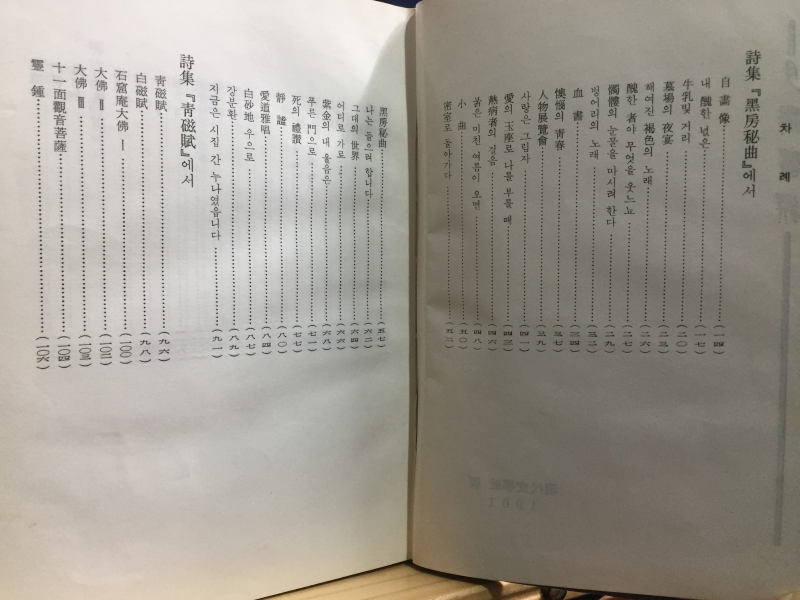 차 례
詩集『黑房秘曲』에서
自畵像 (一四)
내 醜한 넋은 (一七)
牛乳빛 거리 (二〇)
墓場의 夜宴 (二三)
해여진 褐色의 노래 (二六)
醜한 者야 무엇을 웃느뇨 (二七)
髑髏의 눈물을 마시려 한다 (二九)
벙어리의 노래 (三二)
血書 (三四)
懊惱의 青春 (三七)
人物展覽會 (三九)
사랑은 그림자 (四一)
愛의 玉座로 나를 부를 때 (四三)
熱病者의 걸음 (四六)
붉은 미친 여름이 오면 (四八)
小曲 (五〇)
密室로 돌아가다 (五二)
黑房秘曲 (五七)
나는 들으려 합니다 (六二)
그대의 世界 (六四)
어디로 가로 (六六)
紫金의 내 울음은 (六八)
푸른 門으로 (七一)
死의 禮讚 (七七)
靜謐 (八〇)
愛道雅唱 (八四)
白砂地 우으로 (八七)
강분환 (八九)
지금은 시집 간 누나였읍니다 (九一)
詩集『青磁賦』에서
青磁賦 (九六)
白磁賦 (九八)
石窟庵大佛 Ⅰ (一〇〇)
大佛 Ⅱ (一〇二)
大佛 Ⅲ (一〇三)
十一面觀音菩薩 (一〇四)
靈鍾 (一〇六)
1961